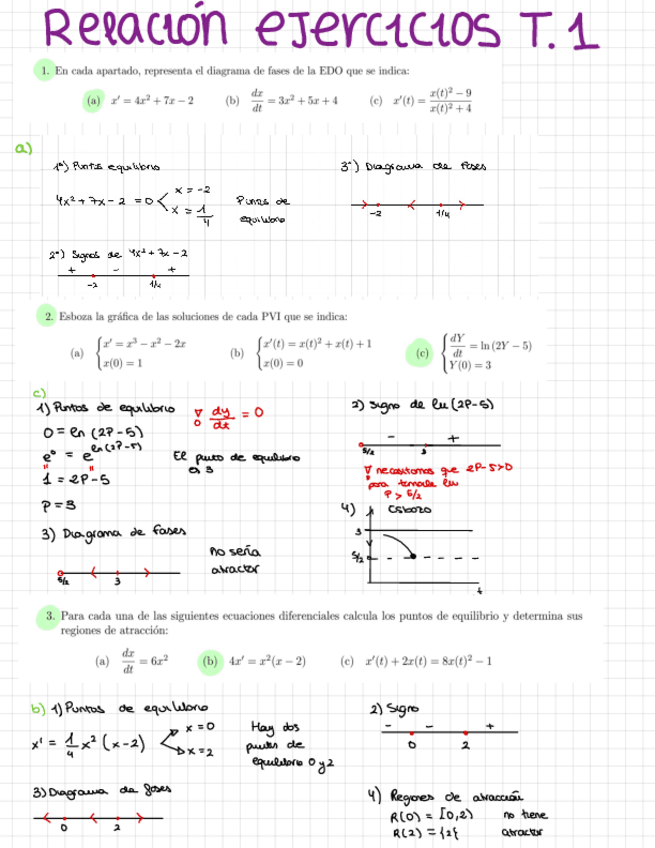 Relación ejercicios T.1
1. En cada apartado, representa el diagrama de fases de la EDO que se indica:
(a) x′ = 4x² + 7x − 2 (b) dx/dt = 3x² + 5x + 4 (c) x′(t) = (x(t)² − 9)/(x(t)² + 4)
a)
1º) Puntos equilibrio
4x² + 7x − 2 = 0 < x = −2
x = 1/4
Puntos de
equilibrio
2º) Signos de 4x² + 7x − 2
+ − +
−2 1/4
3º) Diagrama de fases
−2 1/4
2. Esboza la gráfica de las soluciones de cada PVI que se indica:
(a) { x′ = x³ − x² − 2x
x(0) = 1
(b) { x′(t) = x(t)² + x(t) + 1
x(0) = 0
(c) { dY/dt = ln (2Y − 5)
Y(0) = 3
c)
1) Puntos de equilibrio
dy/dt = 0
0 = ln (2P − 5)
e⁰ = e^ln(2P−5)
" "
1 = 2P − 5
P = 3
El punto de equilibrio
es 3
2) Signo de ln (2P − 5)
− +
5/2 3
necesitamos que 2P − 5 > 0
para tomarle ln
P > 5/2
3) Diagrama de fases
5/2 3
no sería
atractor
4) Esbozo
3
5/2
t
3. Para cada una de las siguientes ecuaciones diferenciales calcula los puntos de equilibrio y determina sus
regiones de atracción:
(a) dx/dt = 6x² (b) 4x′ = x²(x − 2) (c) x′(t) + 2x(t) = 8x(t)² − 1
b) 1) Puntos de equilibrio
x' = 1/4 x² (x − 2) x = 0
x = 2
Hay dos
puntos de
equilibrio 0 y 2
2) Signo
− − +
0 2
3) Diagrama de fases
0 2
4) Regiones de atracción
R(0) = [0, 2) no tiene
R(2) = {2} atractor